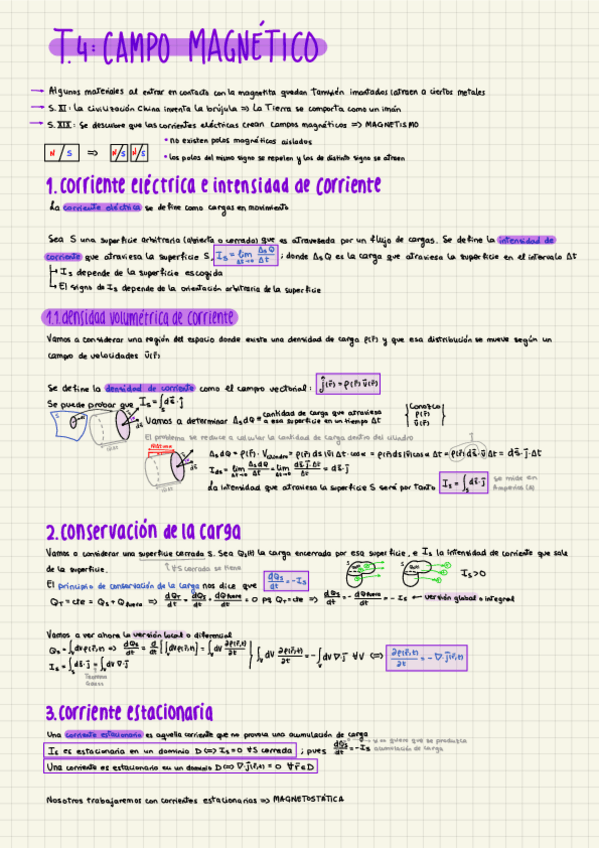 T.4: CAMPO MAGNÉTICO
→ Algunos materiales al entrar en contacto con la magnetita quedan también imantados (atraen a ciertos metales
→ S. XI: La civilización China inventa la brújula => La Tierra se comporta como un imán
→ S. XIX: Se descubre que las corrientes eléctricas crean campos magnéticos => MAGNETISMO
• no existen polos magnéticos aislados
N / S => N/S N/S
• los polos del mismo signo se repelen y los de distinto signo se atraen
1. corriente eléctrica e intensidad de corriente
La corriente eléctrica se define como cargas en movimiento
Sea S una superficie arbitraria (abierta o cerrada) que es atravesada por un flujo de cargas. Se define la intensidad de
corriente que atraviesa la superficie S, I_S = lim_{Δt→0} Δ_SQ/Δt ; donde Δ_SQ es la carga que atraviesa la superficie en el intervalo Δt
→ I_S depende de la superficie escogida
→ El signo de I_S depende de la orientación arbitraria de la superficie
1.1. densidad volumétrica de corriente
Vamos a considerar una región del espacio donde existe una densidad de carga ρ(r⃗) y que esa distribución se mueve según un
campo de velocidades v⃗(r⃗)
Se define la densidad de corriente como el campo vectorial: j⃗(r⃗) = ρ(r⃗) v⃗(r⃗)
Se puede probar que I_S = ∫_S ds⃗·j⃗
Vamos a determinar Δ_S dQ = cantidad de carga que atraviesa
a esa superficie en un tiempo Δt
{ Conozco
ρ(r⃗)
v⃗(r⃗)
El problema se reduce a calcular la cantidad de carga dentro del cilindro
Δ_S dQ = ρ(r⃗) · V_cilindro = ρ(r⃗) ds |v⃗| Δt · cos α = ρ(r⃗) ds |v⃗| cos α Δt = ρ(r⃗) ds⃗·v⃗ Δt = ds⃗·j⃗ Δt
I_ds = lim_{Δt→0} Δ_S dQ/Δt = lim_{Δt→0} ds⃗·j⃗·Δt/Δt = ds⃗·j⃗
La intensidad que atraviesa la superficie S será por tanto I_S = ∫_S ds⃗·j⃗
se mide en
Amperios (A)
2. conservación de la carga
Vamos a considerar una superficie cerrada S. Sea Q_S(t) la carga encerrada por esa superficie, e I_S la intensidad de corriente que sale
de la superficie.
∀S cerrada se tiene
I_S > 0
El principio de conservación de la carga nos dice que dQ_S/dt = -I_S
Q_T = cte = Q_S + Q_fuera => dQ_T/dt = dQ_S/dt + dQ_fuera/dt = 0 pq Q_T = cte => dQ_S/dt = - dQ_fuera/dt = - I_S ← versión global o integral
Vamos a ver ahora la versión local o diferencial
Q_S = ∫_V dV ρ(r⃗,t) => dQ_S/dt = d/dt [∫_V dV ρ(r⃗,t)] = ∫_V dV ∂ρ(r⃗,t)/∂t
I_S = ∫_S ds⃗·j⃗ = ∫_V dV ∇·j⃗
Teorema
Gauss
} ∫_V dV ∂ρ(r⃗,t)/∂t = -∫_V dV ∇·j⃗ ∀V <=> ∂ρ(r⃗,t)/∂t = -∇·j⃗(r⃗,t)
3. corriente estacionaria
Una corriente estacionaria es aquella corriente que no provoca una acumulación de carga
I_S es estacionaria en un dominio D <=> I_S = 0 ∀S cerrada ; pues dQ_S/dt = -I_S
no quiere que se produzca
acumulación de carga
Una corriente es estacionaria en un dominio D <=> ∇·j⃗(r⃗,t) = 0 ∀r⃗∈D
Nosotros trabajaremos con corrientes estacionarias => MAGNETOSTÁTICA